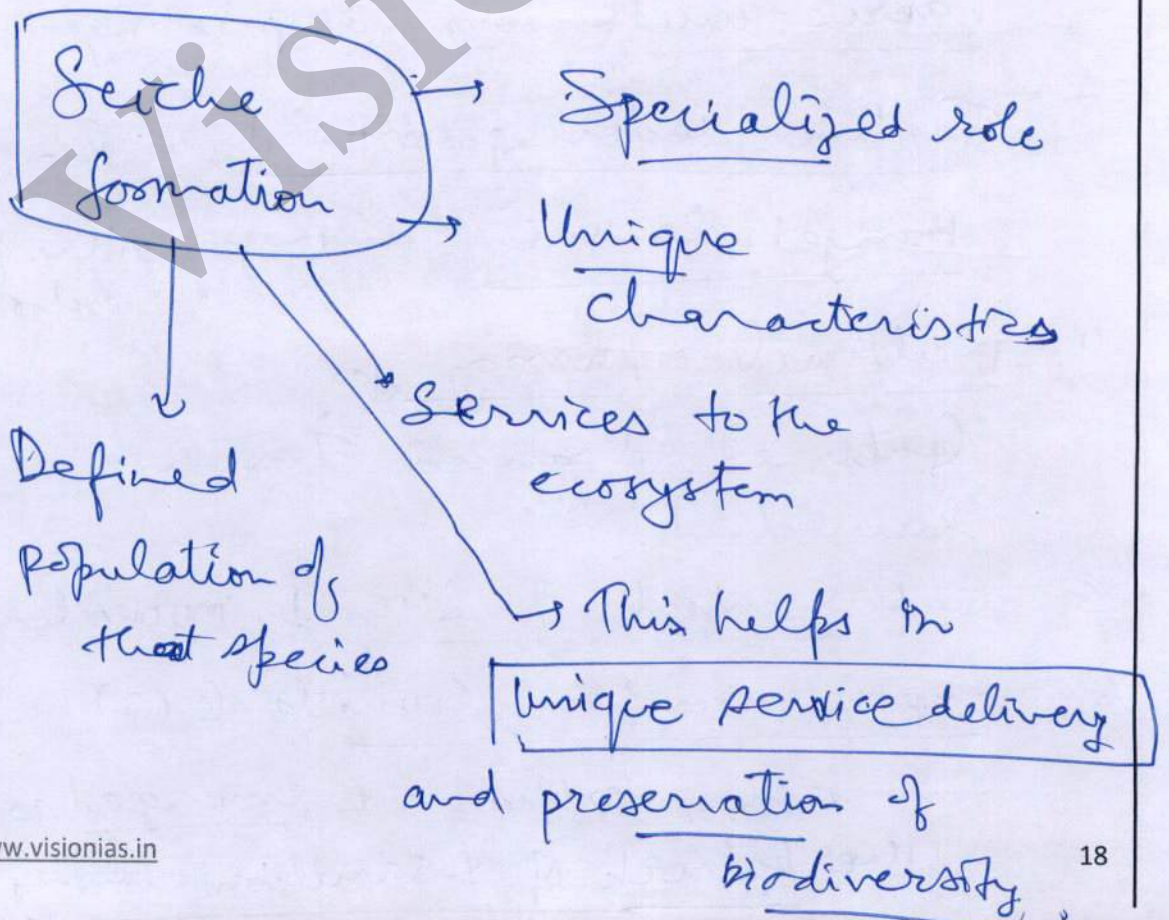 Visi
Seiche
formation
Specialized role
Unique
characteristics
Services to the
ecosystem
Defined
population of
that species
This helps in
Unique service delivery
and preservation of
biodiversity
ww.visionias.in
18